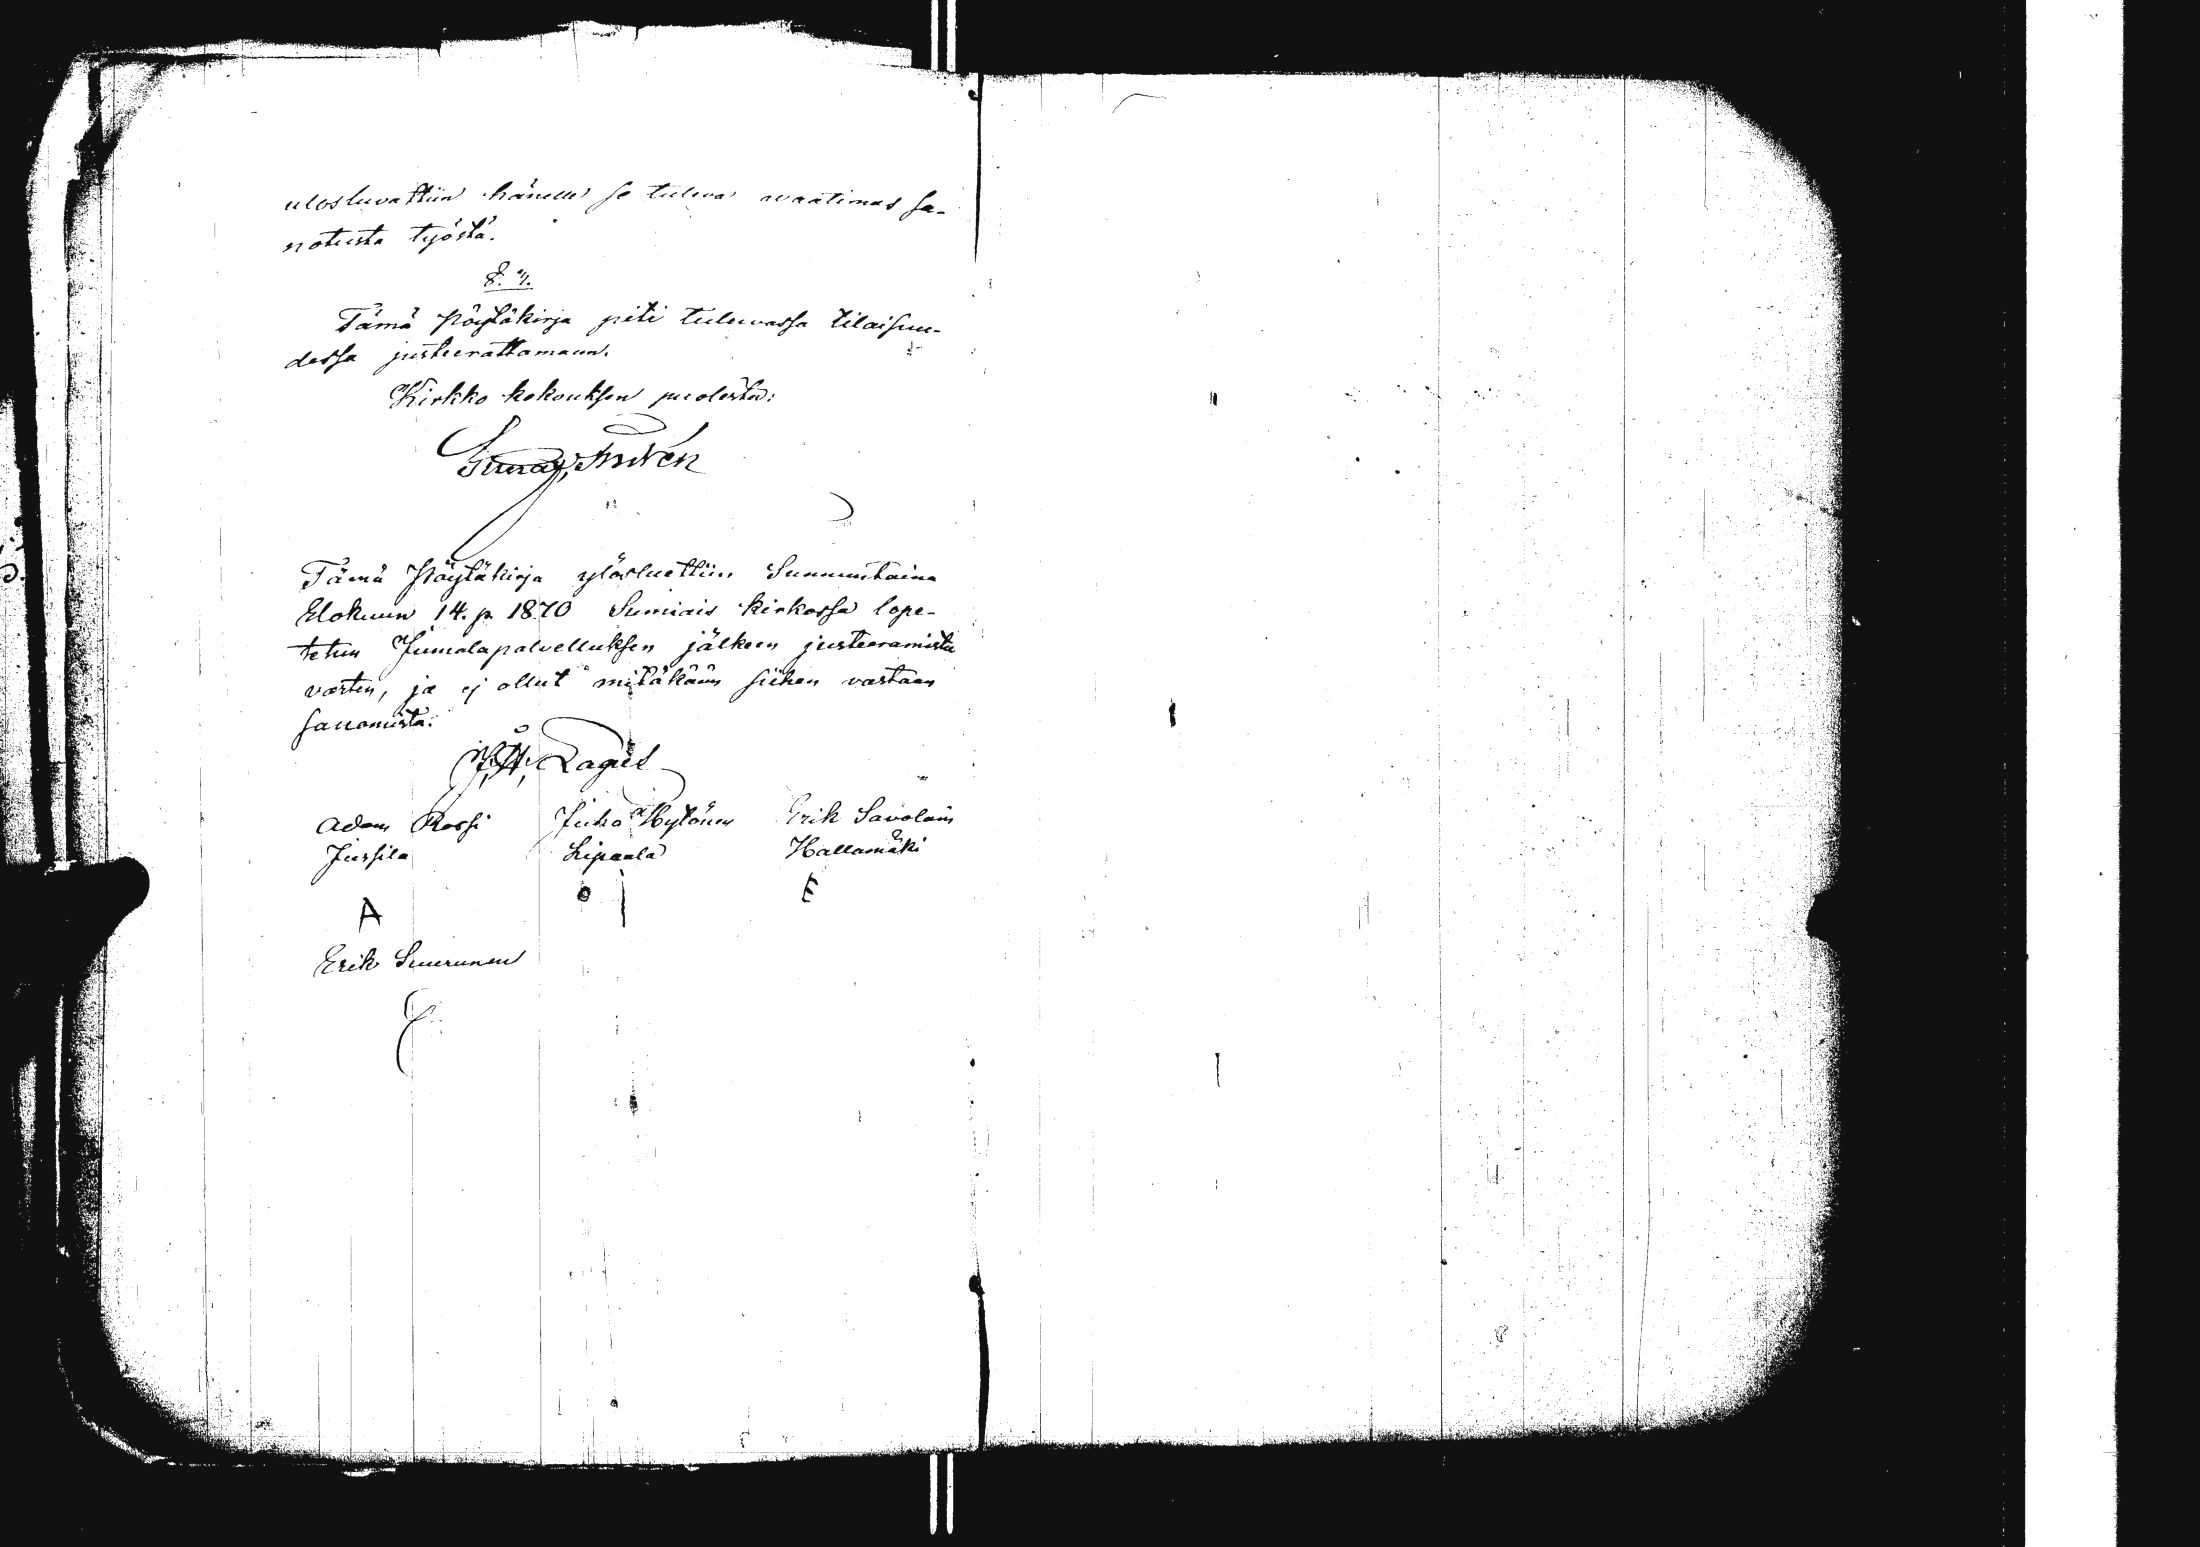 ulosluvattiin hänelle se tuleva waatimus sa-
notusta työstä.
8. §.
Tämä Pöytäkirja piti tulevassa tilaisuu-
dessa justeerattamaan.
Kirkko kokouksen puolesta:
Tämä Pöytäkirja ylösluettiin Sunnuntaina
Elokuun 14. p. 1870 Sumiais kirkossa lope-
tetun Jumalapalvelluksen jälkeen justeeramista
varten, ja ej ollut mitäkään siihen vastaan
sanomista.
Lagus
Adam Rossi Juho Hytönen Erik Savolain
Jussila Lipaala Hallamäki
A E
Erik Suurunen